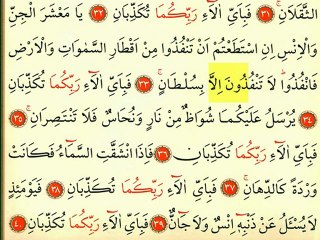 الثَّقَلَانِ ﴿٣١﴾ فَبِاَيِّ اٰلَٓاءِ رَبِّكُمَا تُكَذِّبَانِ ﴿٣٢﴾ يَا مَعْشَرَ الْجِنِّ
وَالْاِنْسِ اِنِ اسْتَطَعْتُمْ اَنْ تَنْفُذُوا مِنْ اَقْطَارِ السَّمٰوَاتِ وَالْاَرْضِ
فَانْفُذُوا لَا تَنْفُذُونَ اِلَّا بِسُلْطَانٍ ﴿٣٣﴾ فَبِاَيِّ اٰلَٓاءِ رَبِّكُمَا تُكَذِّبَانِ
﴿٣٤﴾ يُرْسَلُ عَلَيْكُمَا شُوَاظٌ مِنْ نَارٍ وَنُحَاسٌ فَلَا تَنْتَصِرَانِ ﴿٣٥﴾
فَبِاَيِّ اٰلَٓاءِ رَبِّكُمَا تُكَذِّبَانِ ﴿٣٦﴾ فَاِذَا انْشَقَّتِ السَّمَٓاءُ فَكَانَتْ
وَرْدَةً كَالدِّهَانِ ﴿٣٧﴾ فَبِاَيِّ اٰلَٓاءِ رَبِّكُمَا تُكَذِّبَانِ ﴿٣٨﴾ فَيَوْمَئِذٍ
لَا يُسْـَٔلُ عَنْ ذَنْبِهٖٓ اِنْسٌ وَلَا جَٓانٌّ ﴿٣٩﴾ فَبِاَيِّ اٰلَٓاءِ رَبِّكُمَا تُكَذِّبَانِ ﴿٤٠﴾